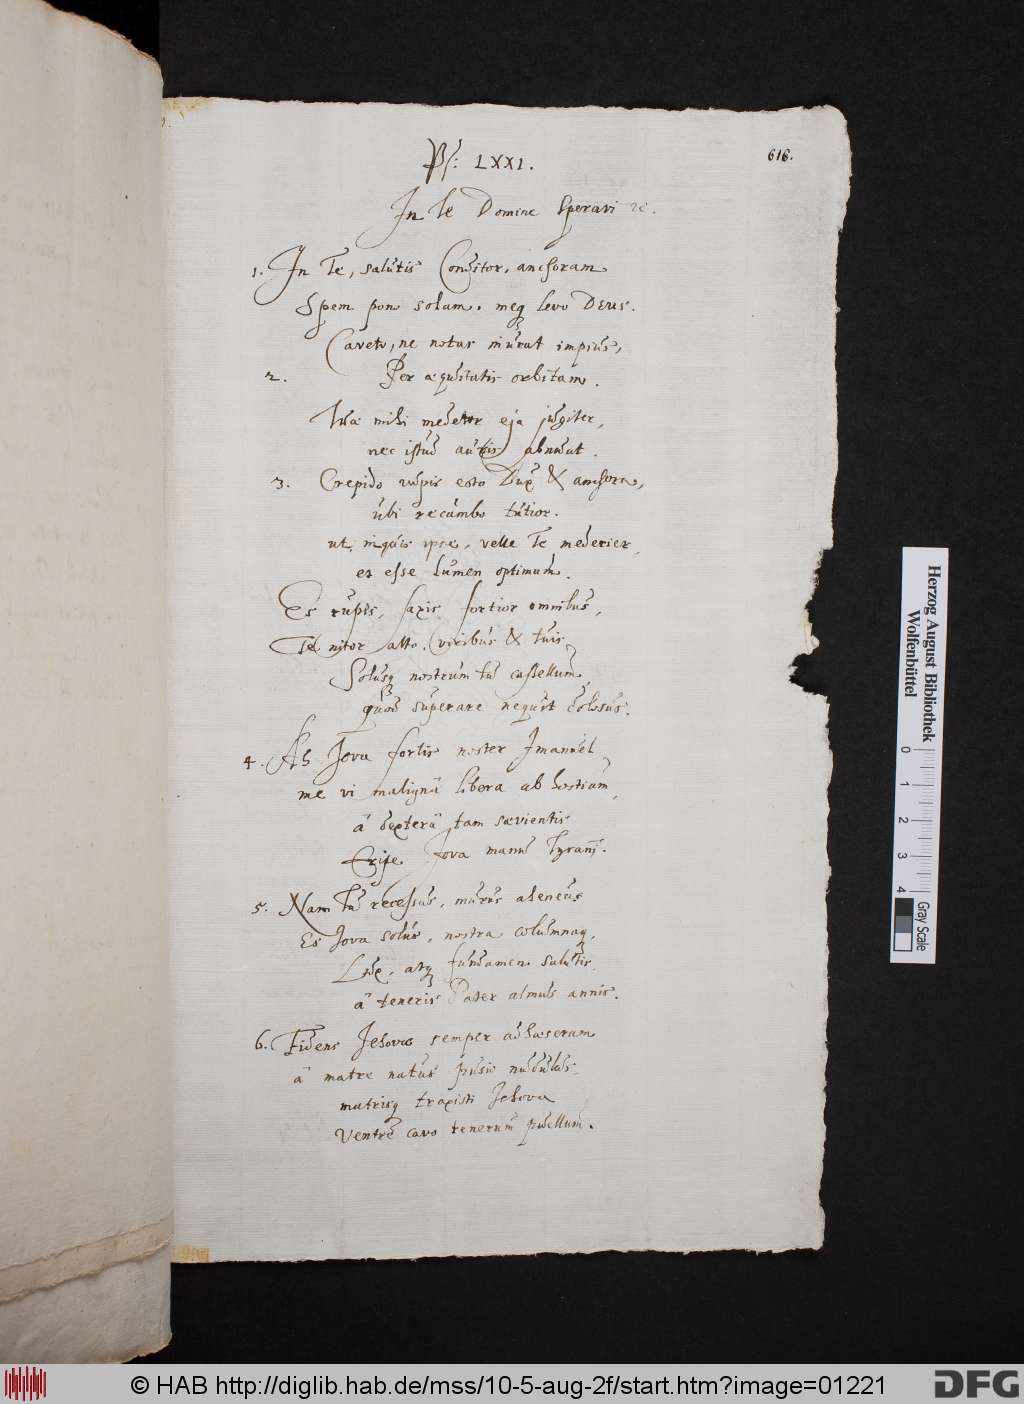 616.
Ps: LXXI.
In te Domine speravi ꝛc.
1. In Te, salutis Conditor, anchoram
Spem pono solam, meq́ levo Deus.
Caveto, ne notas inurat impius,
2. Per æquitatis orbitam.
Tua mihi medetor eja jugiter,
nec istud auris abnuat.
3. Crepido rupis esto Dux & anchora,
ubi recumbo tutior.
ut inquis ipse, velle Te mederier
et esse lumen optimum.
Es rupis, saxis fortior omnibus,
Te nitor alto, viribus & tuis,
Solusq́ nostrum tu castellum,
quod superare nequit Colossus.
4. Ah Jova fortis noster Imanuel
me vi malignâ libera ab hostium,
â dexterâ tam sævientis
Eripe Jova manu Tyranni.
5. Nam Tu recessus, murus aheneus
Es Jova solus, nostra columnaq́,
Lux, atq́ fundamen salutis,
â teneris Pater almus annis.
6. Fidens Jehovæ semper adhæseram
â matre natus pusio nudulus,
matrisq́ traxisti Jehova
Ventre cavo tenerum puellum.
Herzog August Bibliothek
Wolfenbüttel
0 1 2 3 4
Gray Scale
© HAB http://diglib.hab.de/mss/10-5-aug-2f/start.htm?image=01221
DFG